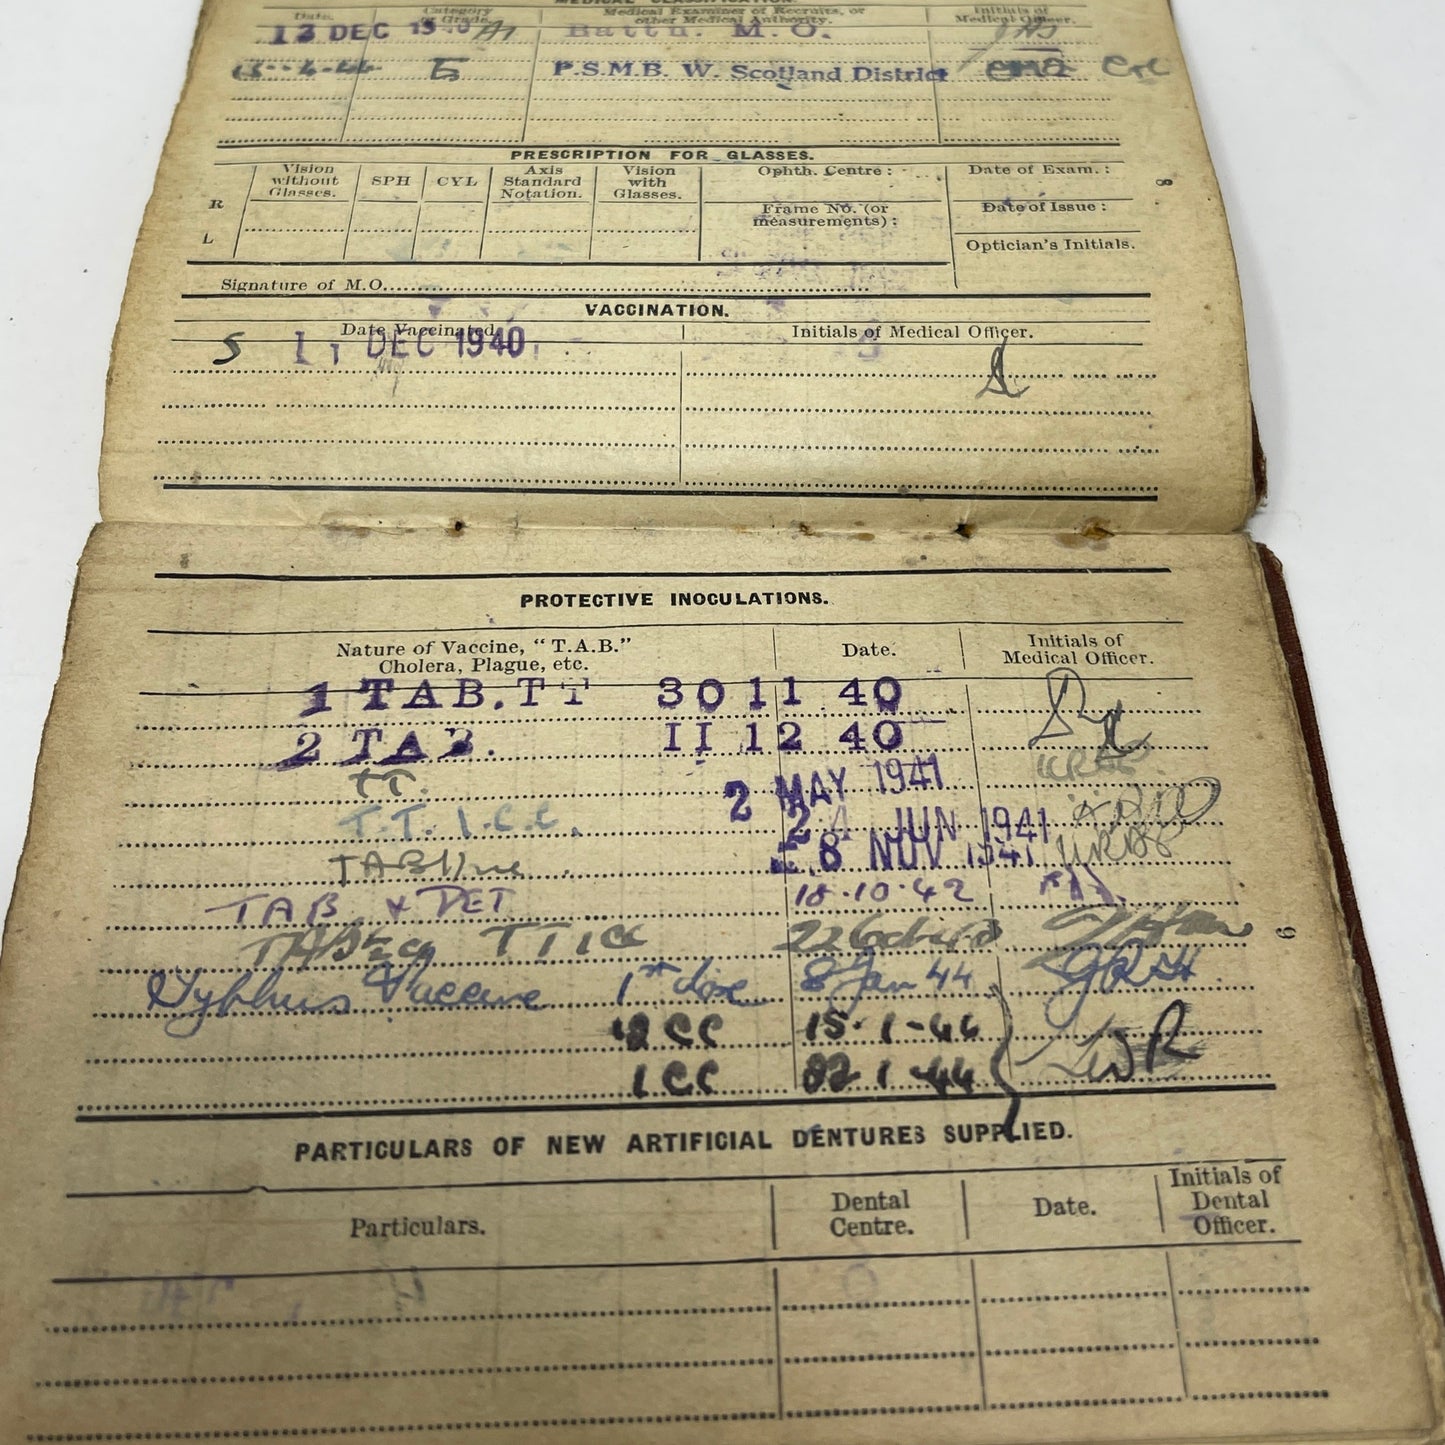 MEDICAL CLASSIFICATION.
Date. Category or Grade. Medical Examiner of Recruits, or other Medical Authority. Initials of Medical Officer.
12 DEC 1940 A1 Battn. M.O.
E P.S.M.B. W. Scotland District
PRESCRIPTION FOR GLASSES.
Vision without Glasses. SPH CYL Axis Standard Notation. Vision with Glasses. Ophth. Centre: Date of Exam.:
R Frame No. (or measurements): Date of Issue:
L Optician's Initials.
Signature of M.O.
8
VACCINATION.
Date Vaccinated. Initials of Medical Officer.
S 11 DEC 1940
PROTECTIVE INOCULATIONS.
Nature of Vaccine, "T.A.B." Cholera, Plague, etc. Date. Initials of Medical Officer.
1 TAB.TT 30 11 40
2 TAB. II 12 40
TT. 2 MAY 1941
T.T. 1.C.C. 24 JUN 1941
TAB 8 NOV 1941
TAB & DET 18.10.42
TAB TT 1cc
Typhus Vaccine 1st dose 8 Jan 44 JRH
CC 15-1-44
1 CC 1-44
9
PARTICULARS OF NEW ARTIFICIAL DENTURES SUPPLIED.
Particulars. Dental Centre. Date. Initials of Dental Officer.